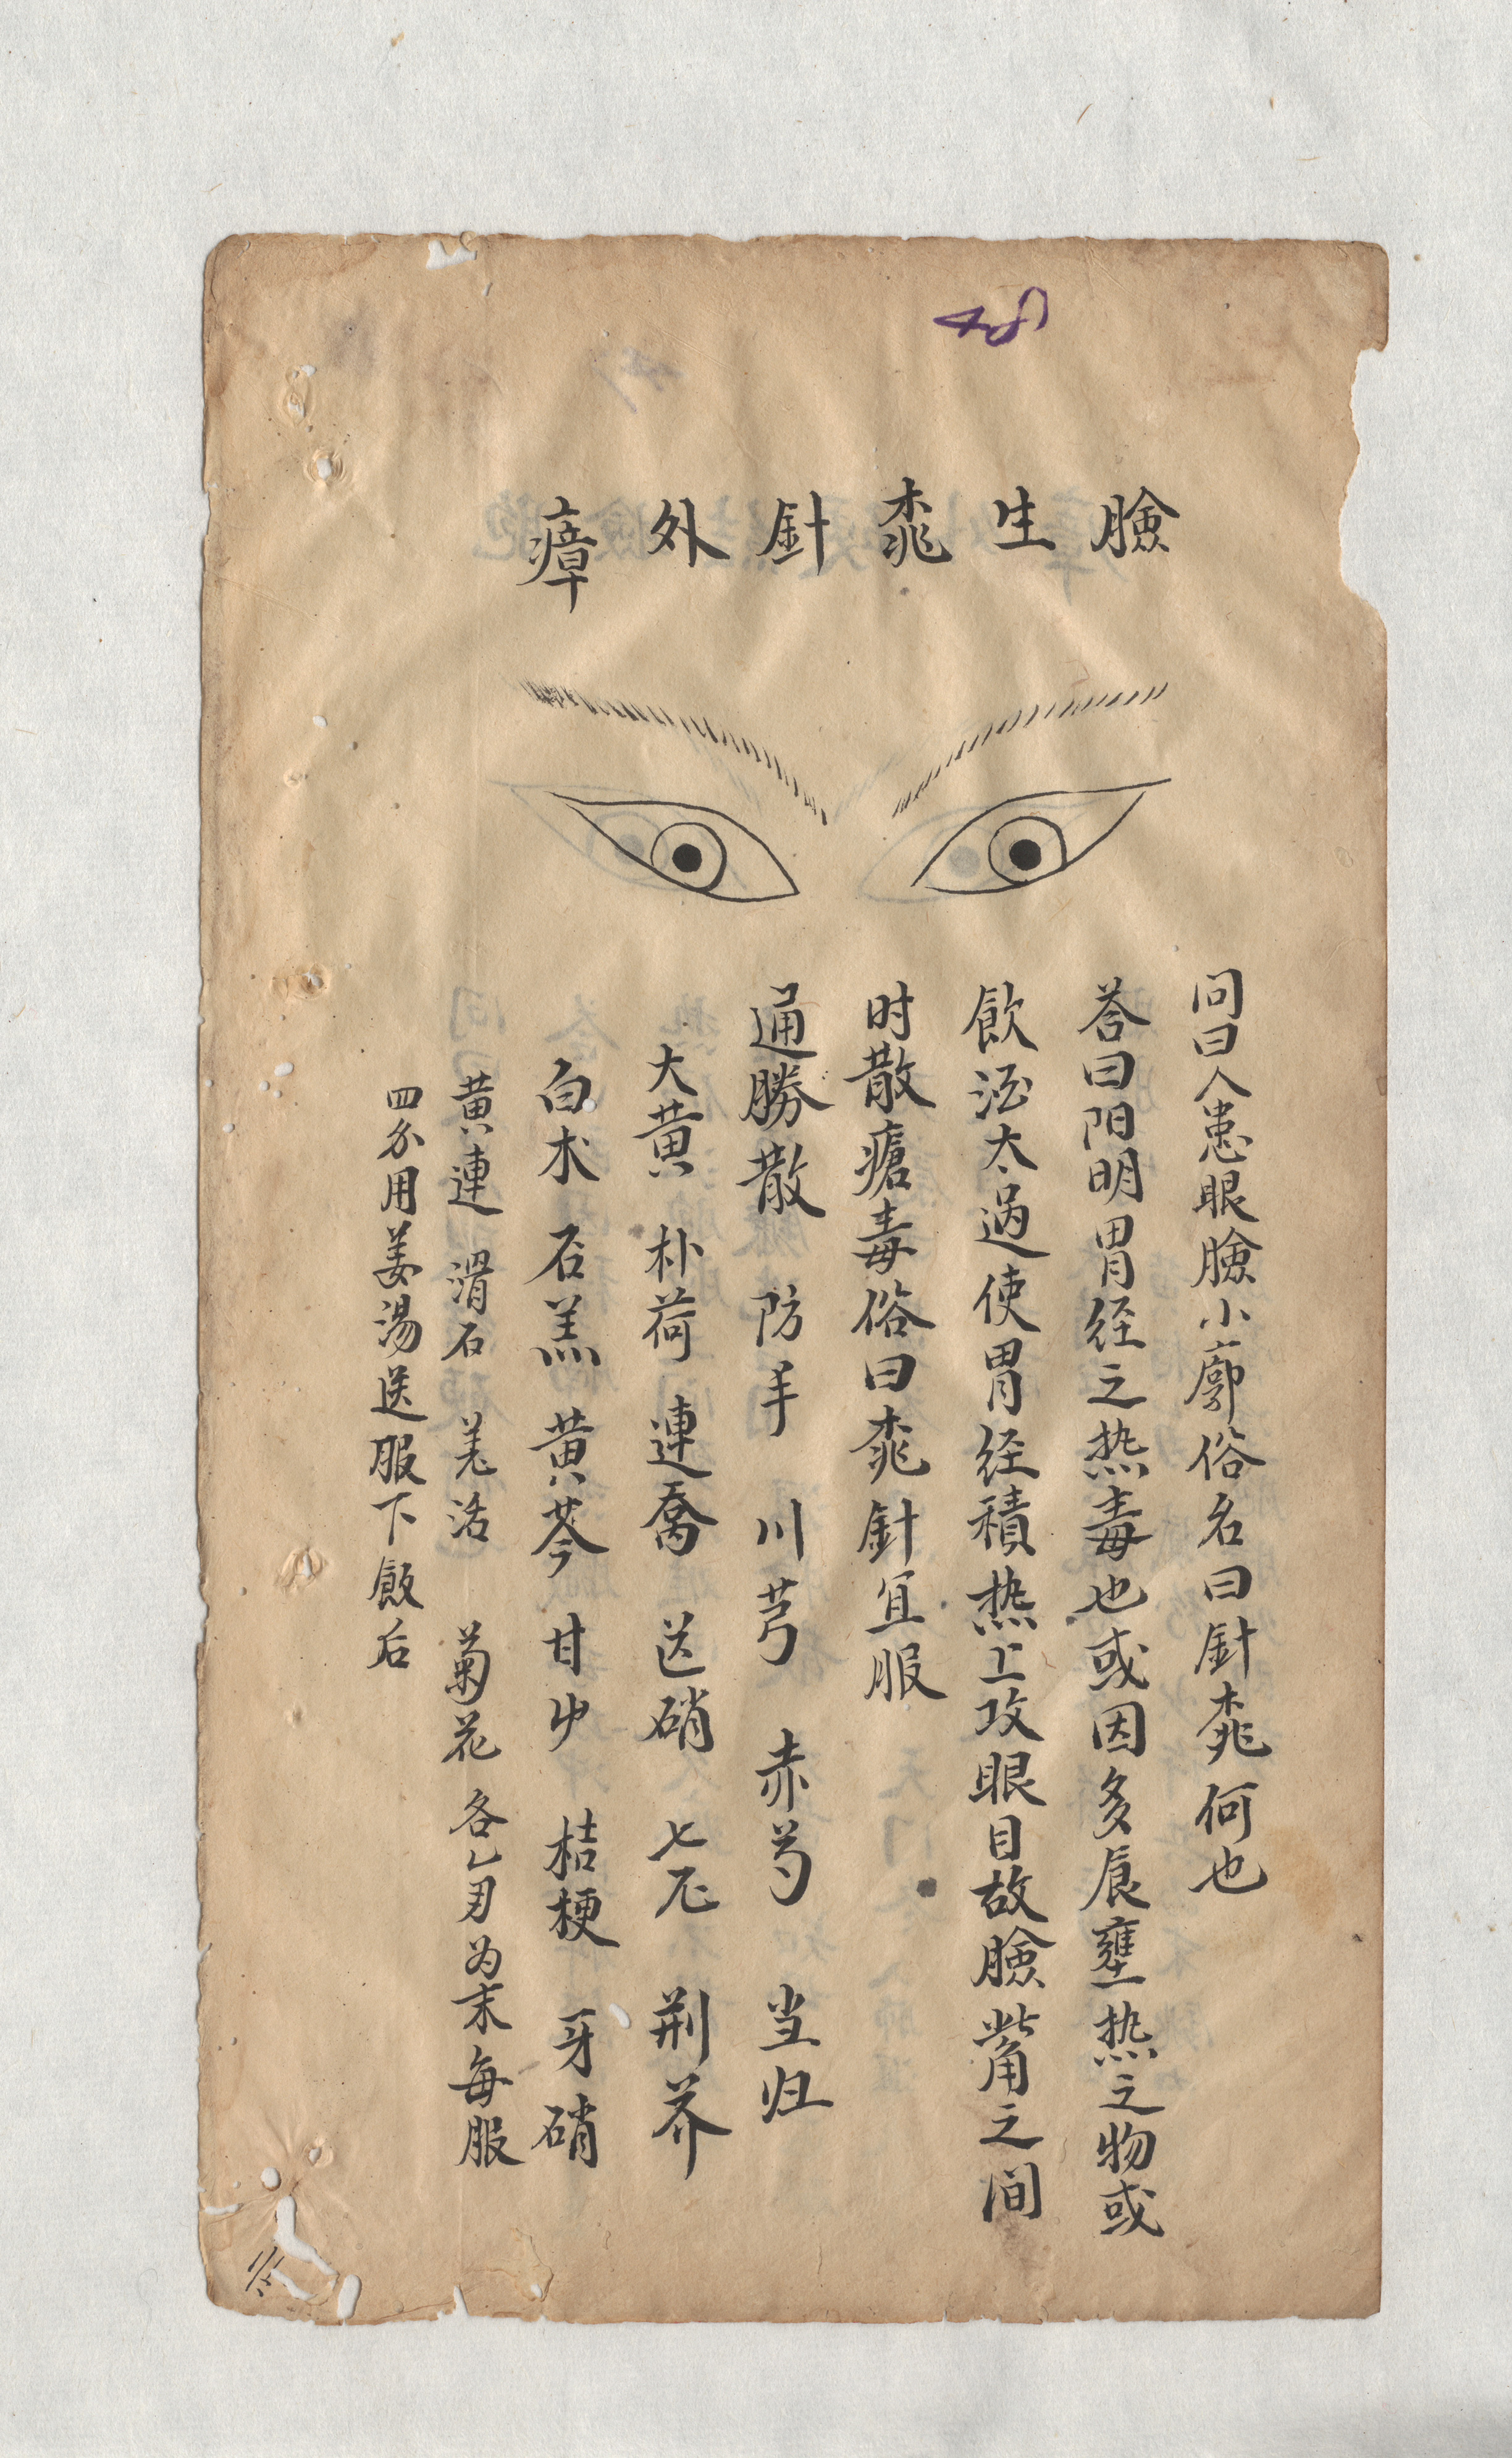 48
臉生桃針外瘴
问曰人患眼臉小廓俗名曰針桃何也
答曰阳明胃経之热毒也或因多食壅热之物或
飲酒太過使胃経積热上攻眼目故臉觜之间
时散瘡毒俗曰桃針宜服
通勝散 防羊 川芎 赤芍 当归
大黄 朴荷 連喬 芒硝 七厄 荆芥
白术 石羔 黄芩 甘屮 桔梗 牙硝
黄連 滑石 羌活 菊花 各乙匁为末每服
四分用姜湯送服下飯后